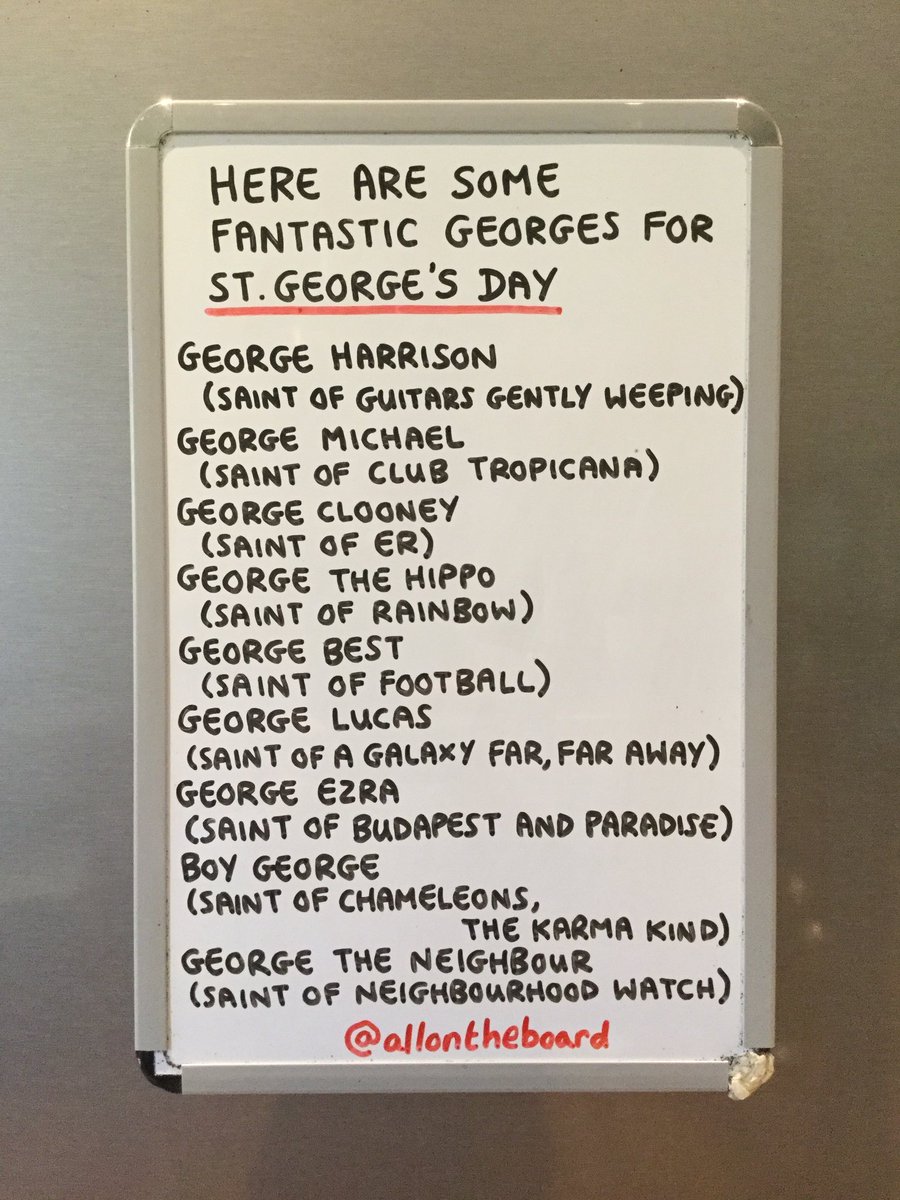 HERE ARE SOME
FANTASTIC GEORGES FOR
ST. GEORGE'S DAY
GEORGE HARRISON
(SAINT OF GUITARS GENTLY WEEPING)
GEORGE MICHAEL
(SAINT OF CLUB TROPICANA)
GEORGE CLOONEY
(SAINT OF ER)
GEORGE THE HIPPO
(SAINT OF RAINBOW)
GEORGE BEST
(SAINT OF FOOTBALL)
GEORGE LUCAS
(SAINT OF A GALAXY FAR, FAR AWAY)
GEORGE EZRA
(SAINT OF BUDAPEST AND PARADISE)
BOY GEORGE
(SAINT OF CHAMELEONS,
THE KARMA KIND)
GEORGE THE NEIGHBOUR
(SAINT OF NEIGHBOURHOOD WATCH)
@allontheboard